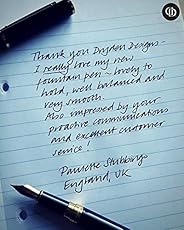 Thank you Dryden Designs -
I really love my new
fountain pen - lovely to
hold, well balanced and
very smooth.
Also impressed by your
proactive communications
and excellent customer
service!
Paulette Stubbings
England, UK